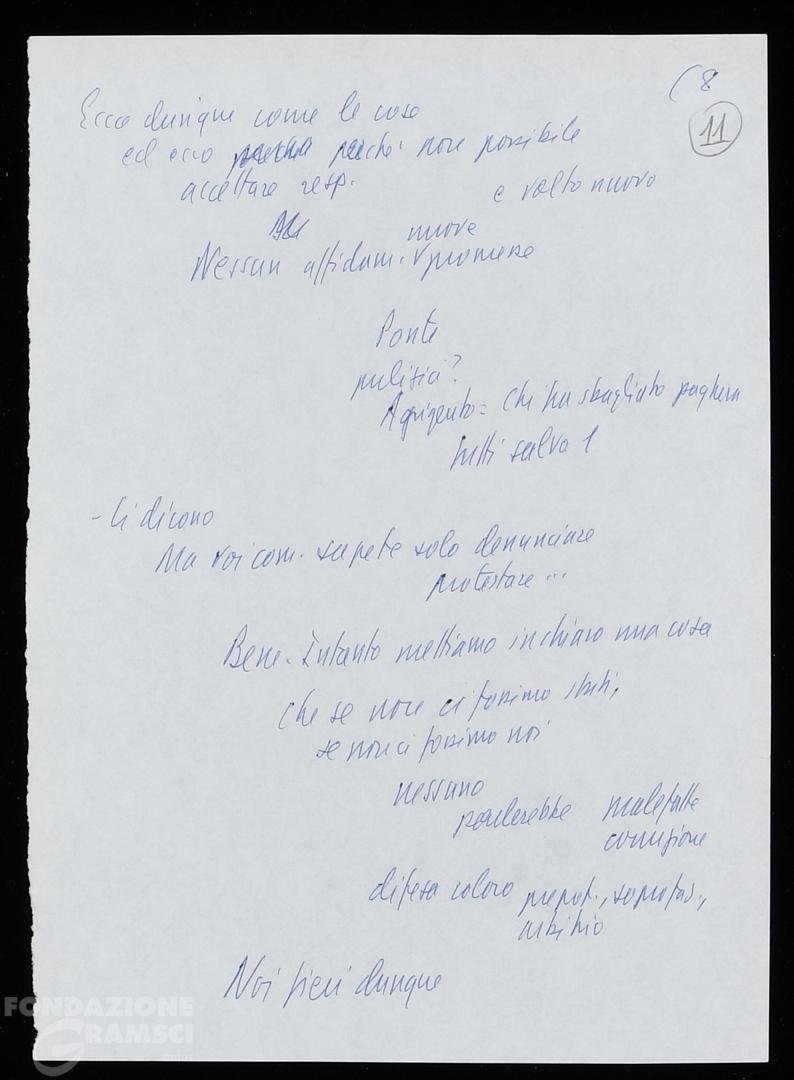 ( 8
11
Ecco dunque come le cose
ed ecco perché non possibile
accettare resp.
e volto nuovo
nuove
Nessun affidam. V promesse
Ponte
pulizia?
Agrigento = chi ha sbagliato pagherà
tutti salvo 1
- Ci dicono
Ma voi com. sapete solo denunciare
protestare ...
Bene. Intanto mettiamo in chiaro una cosa
che se non ci fossimo stati,
se non ci fossimo noi
nessuno
parlerebbe malefatte
corruzione
difesa coloro prepot., sopraffaz.,
arbitrio
Noi fieri dunque
FONDAZIONE
GRAMSCI
onlus